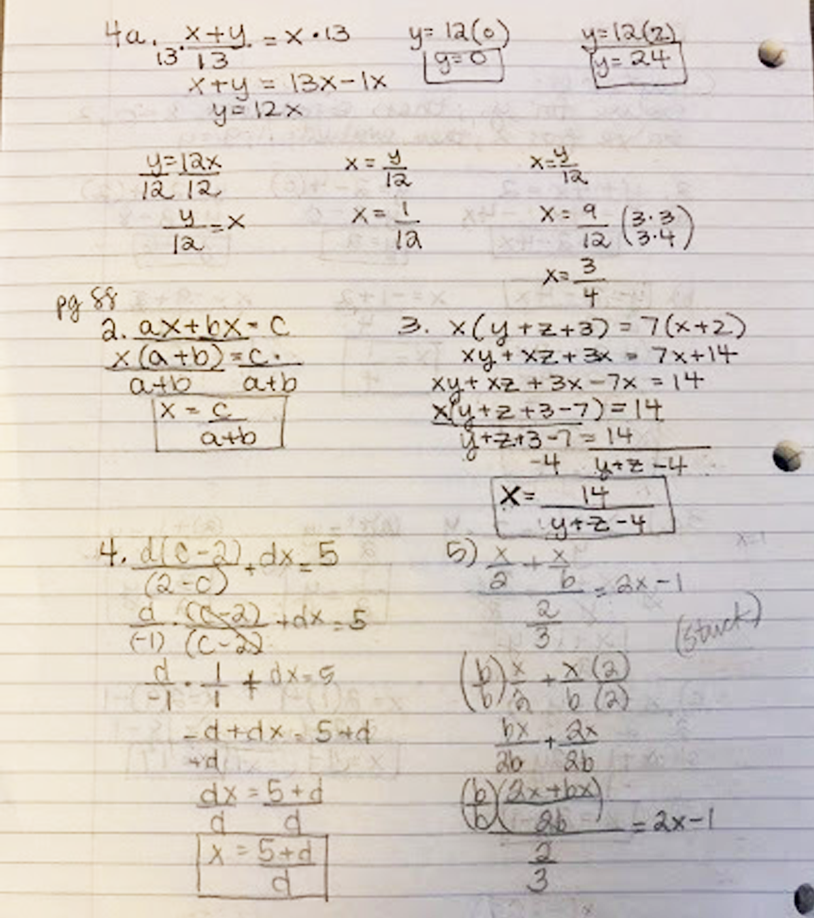 4a. 13 · (x+y)/13 = x · 13
x+y = 13x-1x
y=12x
y= 12(0)
y=0
y=12(2)
y= 24
y/12=12x/12
y/12=x
x= y/12
x= 1/12
x=y/12
x= 9/12 (3·3/3·4)
x= 3/4
pg 88
2. ax+bx= c
x(a+b)/a+b = c·/a+b
x = c/a+b
3. x(y+z+3) = 7(x+2)
xy+xz+3x = 7x+14
xy+xz+3x-7x = 14
x(y+z+3-7)=14
y+z+3-7 = 14
-4 y+z-4
x= 14/y+z-4
4. d(c-2)/(2-c) + dx=5
d/(-1) · (c-2)/(c-2) +dx=5
d/-1 · 1/1 + dx=5
-d+dx=5+d
+d
dx/d = 5+d/d
x = 5+d/d
5) x/2 + x/b = 2x-1
2/3
(stuck)
(b/b) x/2 + x(2)/b(2)
bx/2b + 2x/2b
(b/b)(2x+bx/2b) = 2x-1
2/3